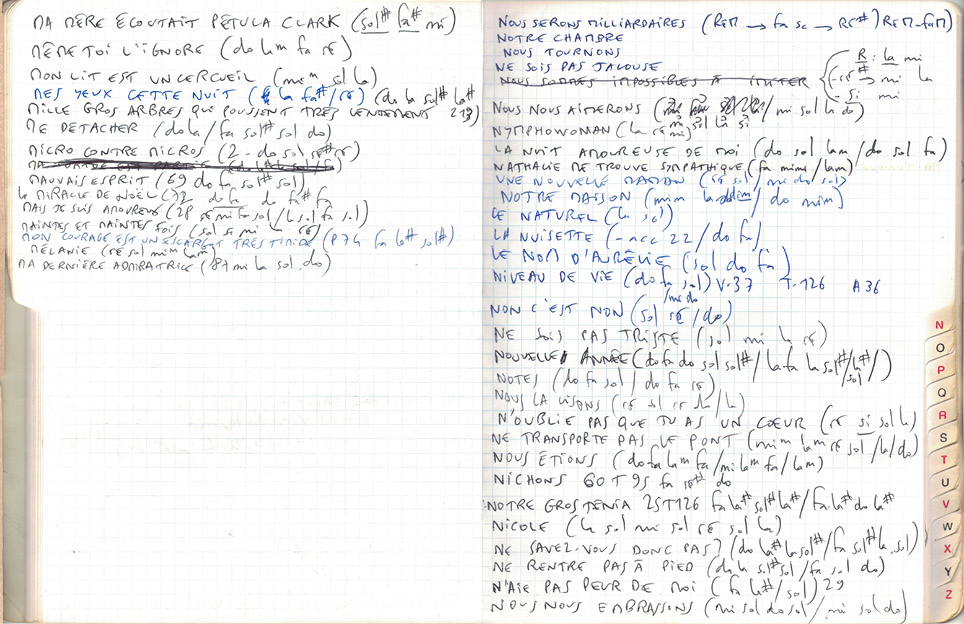 MA MÈRE ÉCOUTAIT PÉTULA CLARK (sol# fa# mi)
MÊME TOI L'IGNORE (do lam fa ré)
MON LIT EST UN CERCUEIL (mim sol la)
MES YEUX CETTE NUIT (la fa#/ré) (do la sol# la#
MILLE GROS ARBRES QUI POUSSENT TRÈS LENTEMENT 213)
ME DÉTACHER (do la/fa sol# sol do)
MICRO CONTRE MICROS (2-do sol ré# ré)
MAUVAIS ESPRIT (69 do fa sol# sol)
LE MIRACLE DE NOËL (72 do la do fa# fa
MAIS JE SUIS AMOUREUX (28 ré mi fa sol/la sol fa sol)
MAINTES ET MAINTES FOIS (sol si mi la ré)
MON COURAGE EST UN ESCARGOT TRÈS TIMIDE (P74 fa la# sol#)
MÉLANIE (ré sol mim lam
MA DERNIÈRE ADMIRATRICE (87 mi la sol do)
NOUS SERONS MILLIARDAIRES (RÉM → fa → RÉ#) RÉM-faM)
NOTRE CHAMBRE
NOUS TOURNONS
NE SOIS PAS JALOUSE
NOUS SOMMES IMPOSSIBLES À IMITER
R: la mi
ré# → mi la
- si mi
NOUS NOUS AIMERONS (mi sol la do)
NYMPHOWOMAN (la ré sol la si
mi)
LA NUIT AMOUREUSE DE MOI (do sol lam/do sol fa)
NATHALIE ME TROUVE SYMPATHIQUE (fa mimi/lam)
UNE NOUVELLE MAMAN (ré sol/mi do sol)
NOTRE MAISON (mim la / do mim)
LE NATUREL (la sol)
LA NUISETTE (-acc 22/do fa)
LE NOM D'AURÉLIE (sol do fa)
NIVEAU DE VIE (do fa sol) V.37 T.126 A36
NON C'EST NON (sol ré/do)
/mi do
NE SOIS PAS TRISTE (sol mi la ré)
NOUVELLE ANNÉE (do fa do sol sol#/la fa la sol#/la#/)
sol
NOTES (do fa sol/do fa ré)
NOUS LA LISONS (ré sol ré la/la)
N'OUBLIE PAS QUE TU AS UN COEUR (ré si sol la)
NE TRANSPORTE PAS LE PONT (mim lam ré sol/la/do)
NOUS ÉTIONS (do fa lam fa/mi lam fa/lam)
NICHONS 60 T 95 fa ré# do
NOTRE GROS TÉNIA 25T126 fa la# sol# la#/fa la# do la#
NICOLE (la sol mi sol ré sol la)
NE SAVEZ-VOUS DONC PAS? (do la# la sol#/fa sol# la sol)
NE RENTRE PAS À PIED (do la sol# sol/fa sol do)
N'AIE PAS PEUR DE MOI (fa la#/sol) 29
NOUS NOUS EMBRASSONS (mi sol do sol/mi sol do)
N
O
P
Q
R
S
T
U
V
W
X
Y
Z